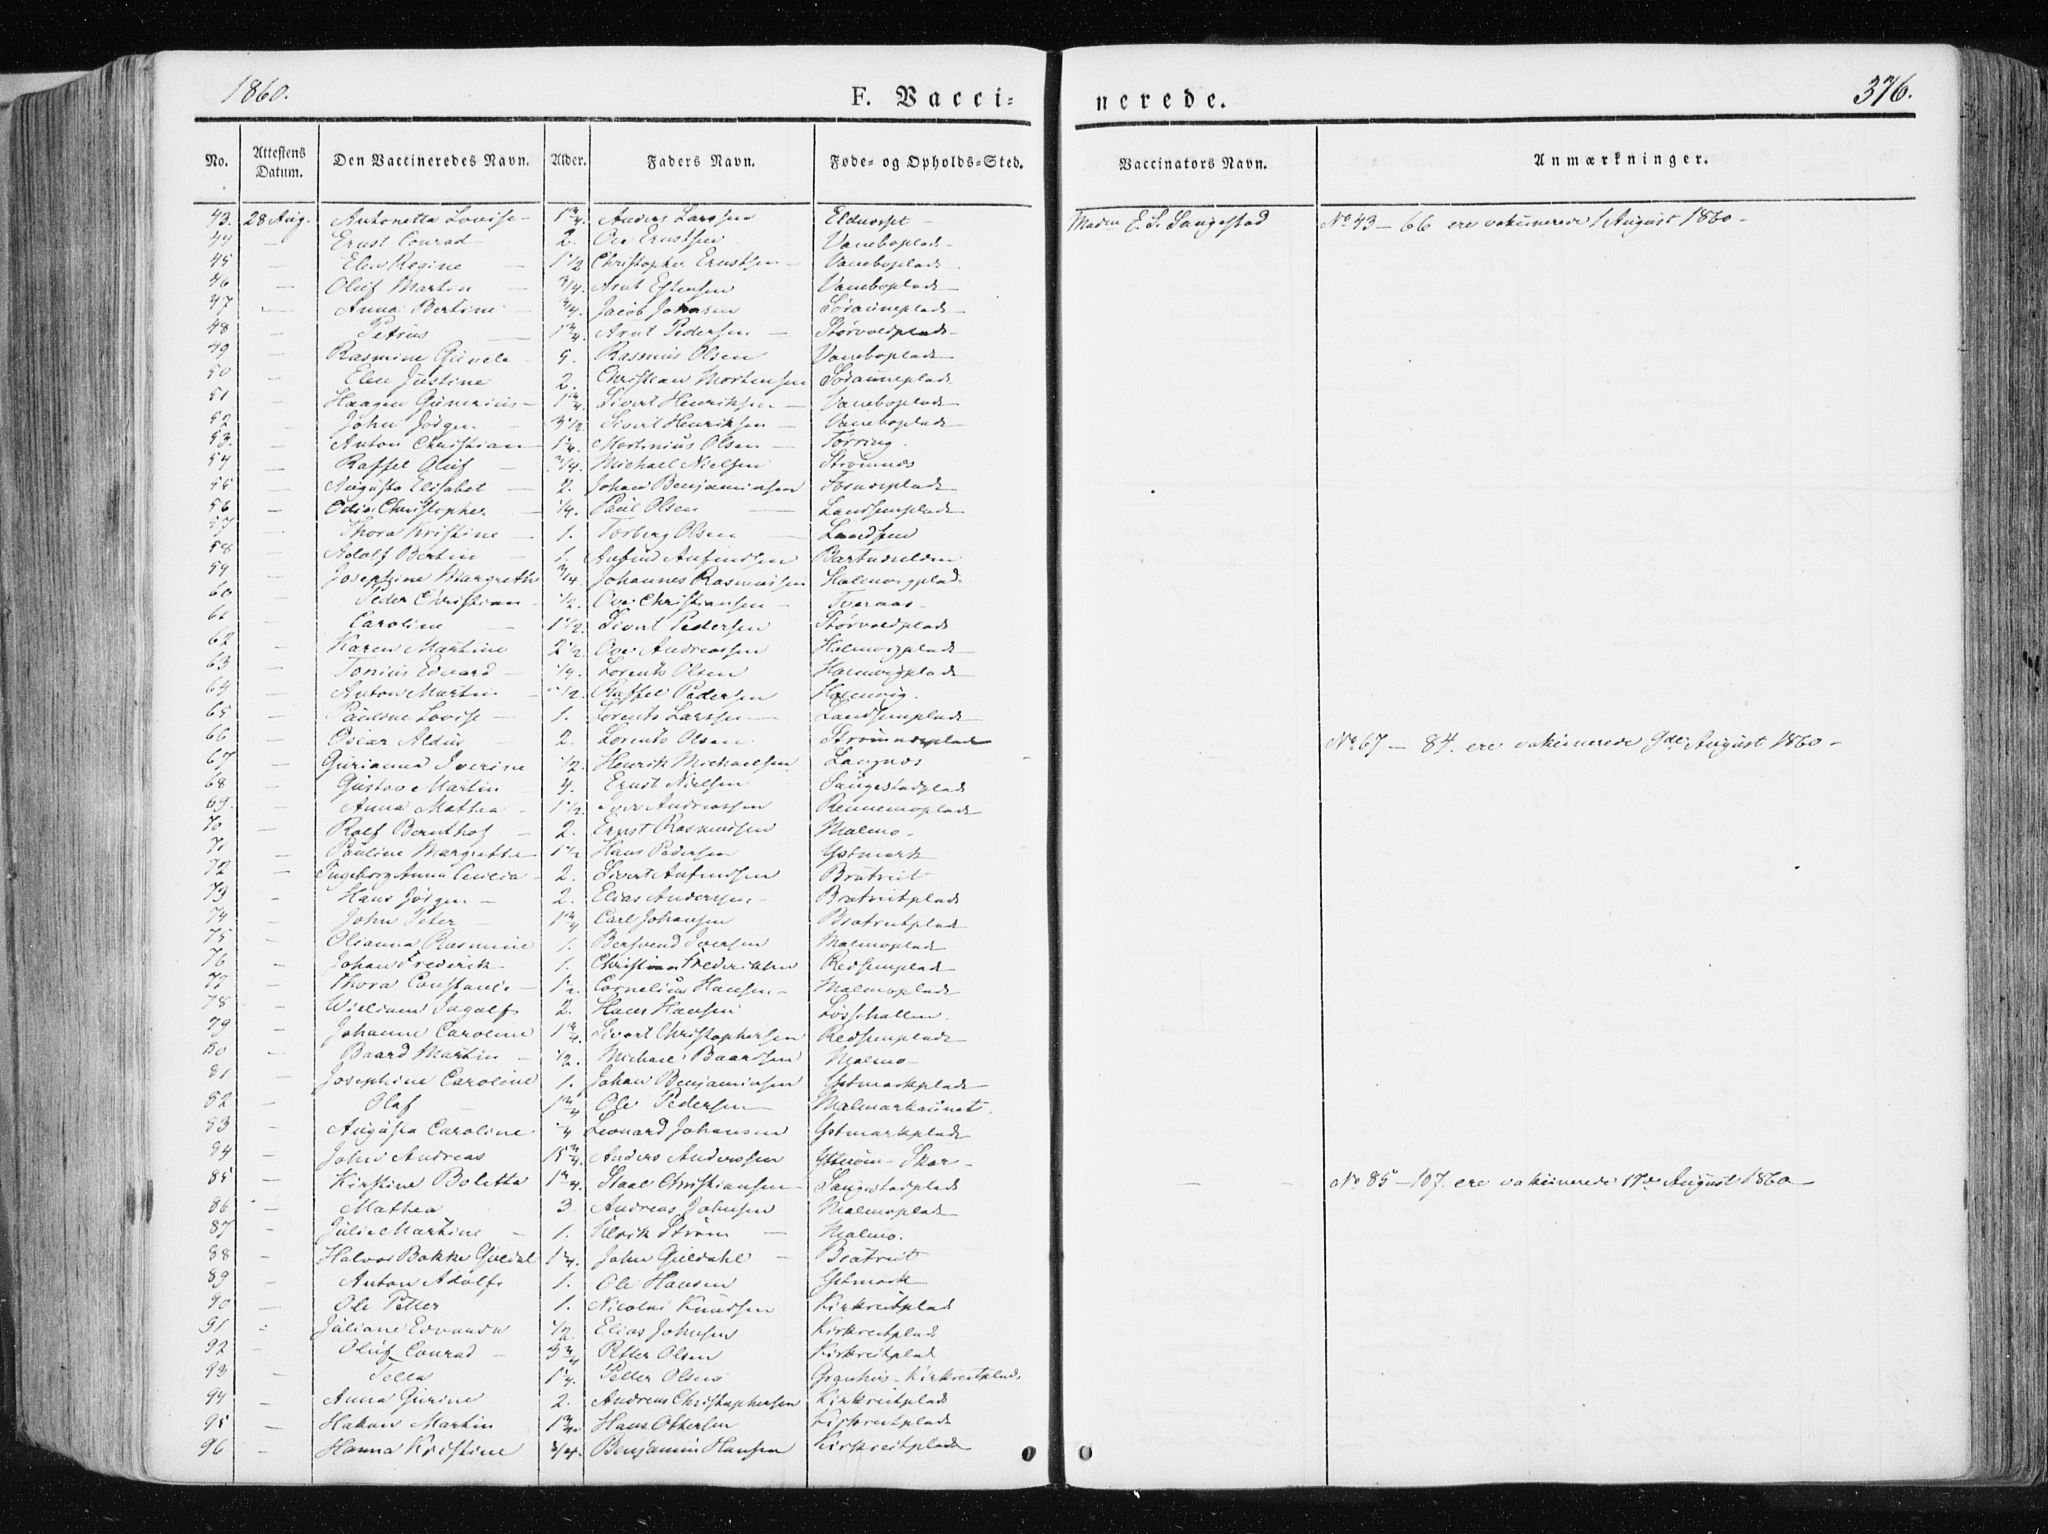 1860.
F. Vacci=
nerede.
376.
No. Attestens Datum. Den Vaccineredes Navn. Alder. Faders Navn. Føde- og Opholds-Sted. Vaccinators Navn. Anmærkninger.
43. 28 Aug. Antonetta Lovise 1 3/4 Anders Larssen E. S. Saugestad No 43 – 66 ere vakcinerede 1 August 1860
44 – Ernst Conrad 2. Ole Ernstsen Vaneboplads
45 – Elen Regine 1 1/2 Christopher Ernstsen Vaneboplads
46 – Oluf Martin 3/4. Arnt Estensen Vaneboplads
47 – Anna Bertine 3/4. Jacob Johnsen
48 – Petrus 1 3/4 Arnt Pedersen Størvoldplads
49 – Rasmine 5. Rasmus Olsen Vaneboplads
50 – Elen Justine 2. Christian Mortensen
51 – Haagen Gunerius 1 3/4. Sivert Henriksen Vaneboplads
52 – John Jørgen 3 1/2 Sivert Henriksen Vaneboplads
53. – Anton Christian 1 1/4 Martinius Olsen Tørring.
54 – Raffel Oluf 3/4. Michael Nielsen Strømnes
55 – Augusta Elisabet 2. Johan Benjaminsen
56 – Christopher 1/4. Paul Olsen Landsemplads
57 – Thora Kristine 1. Torberg Olsen Landsem
58 – Adolf Bertin 1. Anfind Anfindsen
59 – Josephine Margrethe 3/4. Johannes Rasmussen Holmvigplads
60 – Peder Christian 1/2. Ove Christiansen Tveraas
61 – Caroline 1 1/2 Sivert Pedersen Størvoldplads
62 – Karen Martine 2 1/2 Ove Andreassen Holmvigplads
63 – Tonius Edvard 1/4. Lorents Olsen Holmvigplads
64 – Anton Martin 1/2. Raffel Pedersen Holmvig.
65 – Pauline Lovise 1. Lorents Larssen Landsemplads
66 – Oscar Aldus 2. Lorents Olsen Strømnesplads
67 – Gurianna Iverine 1/2 Henrik Michaelsen Langnes No 67 – 84. ere vakcinerede 9de August 1860
68 – Gustav Martin 4. Ernst Nielsen Saugestadplads
69. – Anna Mathea 1 1/2 Iver Andreassen Rennemoplads
70 – Rolf Bernthof 2. Ernst Rasmussen Malmo
71 – Pauline Margrethe 1 1/2 Hans Pedersen Ystmark
72 – Ingeborg Anna Cecilia 2. Sivert Anfindsen Bratreit
73 – Hans Jørgen 2. Elias Andersen Bratreitplads
74 – John Peter 1 3/4 Carl Johansen Bratreitplads
75 – Olianna Rasmine 1. Bersvend Iversen Malmoplads
76 – Johan Frederik 1. Christian Frederiksen Redsemplads
77 – Thora Constance 1 1/2. Cornelius Hansen Malmoplads
78 – William Ingolf 2. Hans Hansen
79 – Johanne Caroline 1 3/4 Sivert Christophersen Redsemplads
80 – Baard Martin 1/2. Michael Baardsen Malmo
81 – Josephine Caroline 1. Johan Benjaminsen Ystmarkplads
82 – Olaf 1 3/4 Ole Pedersen
83 – Augusta Caroline 1/4 Leonard Johansen Ystmarkplads
84 – John Andreas 5 3/4. Anders Anderssen
85 – Kirstine Boletta 1 3/4. Staal Christiansen Saugestadplads – – No 85 – 107. ere vakcinerede 17de August 1860
86 – Mathea 3 Andreas Johnsen Malmoplads
87 – Julie Martine 1. Ulrik Strøm Malmo.
88 – Halvor Bakke Gieldal 1 1/4. John Gieldahl Bratreit
89 – Anton Adolf 1. Ole Hansen Ystmark
90 – Ole Petter 1. Nicolai Knudsen Kirkreitplads
91 – Juliane Edvarda 1/2 Elias Johnsen Kirkreitplads
92 – Oluf Conrad 3 3/4 Petter Olsen Kirkreitplads
93 – 1 1/4. Petter Olsen Kirkreitplads
94 – Anna Gurine 2. Andreas Christophersen Kirkreitplads
95 – Hakon Martin 1 3/4. Hans Ottersen Kirkreitplads
96 – Hanna Kristine 3/4. Benjamin Hansen Kirkreitplads